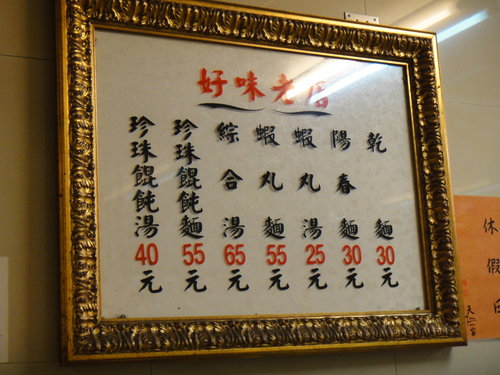 好味老店
乾麵30元
陽春麵30元
蝦丸湯25元
蝦丸麵55元
綜合湯65元
珍珠餛飩麵55元
珍珠餛飩湯40元
休假日